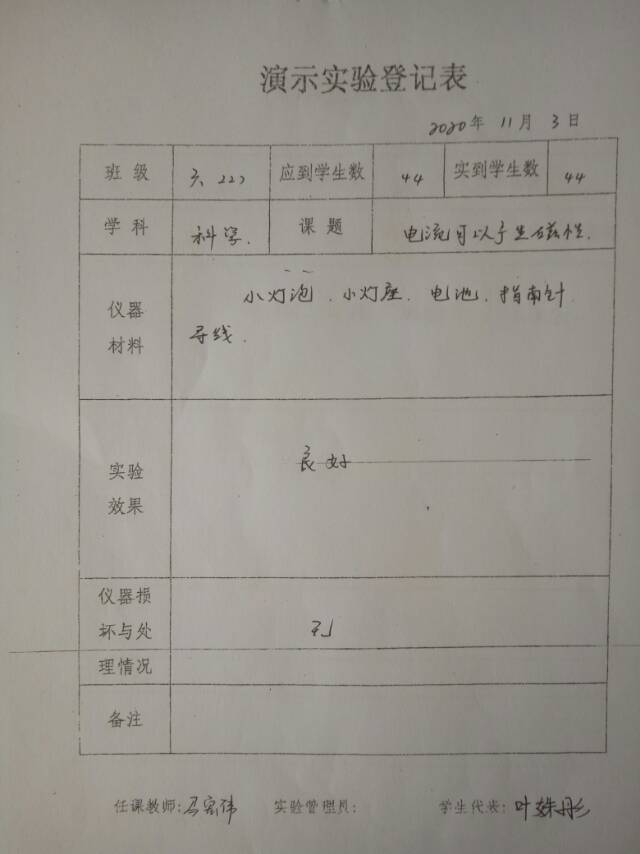 演示实验登记表
2020年 11月 3日
班级 六 应到学生数 44 实到学生数 44
学科 科学. 课题 电流可以产生磁性.
仪器材料 小灯泡、小灯座、电池、指南针
导线.
实验效果 良好
仪器损坏与处理情况
备注
任课教师: 实验管理员: 学生代表: 叶姝彤